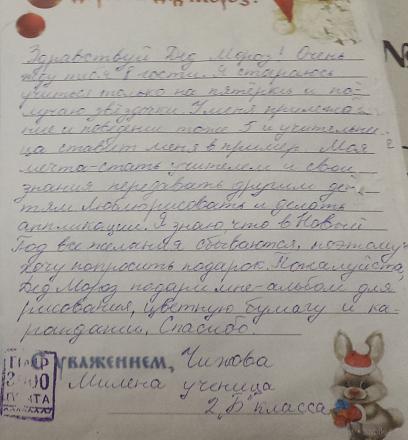 Здравствуй Дед Мороз! Очень
жду тебя в гости. Я стараюсь
учиться только на пятёрки и по-
лучаю звёздочки. У меня прилежа-
ние и поведение тоже 5 и учительни-
ца ставит меня в пример. Моя
мечта-стать учителем и свои
знания передавать другим де-
тям. Люблю рисовать и делать
аппликации. Я знаю, что в Новый
Год все желания сбываются, поэтому
хочу попросить подарок. Пожалуйста,
Дед Мороз подари мне-альбом для
рисования, цветную бумагу и ка-
рандаши. Спасибо.
С уважением, Чижова
Милена ученица
2 "Б" класса